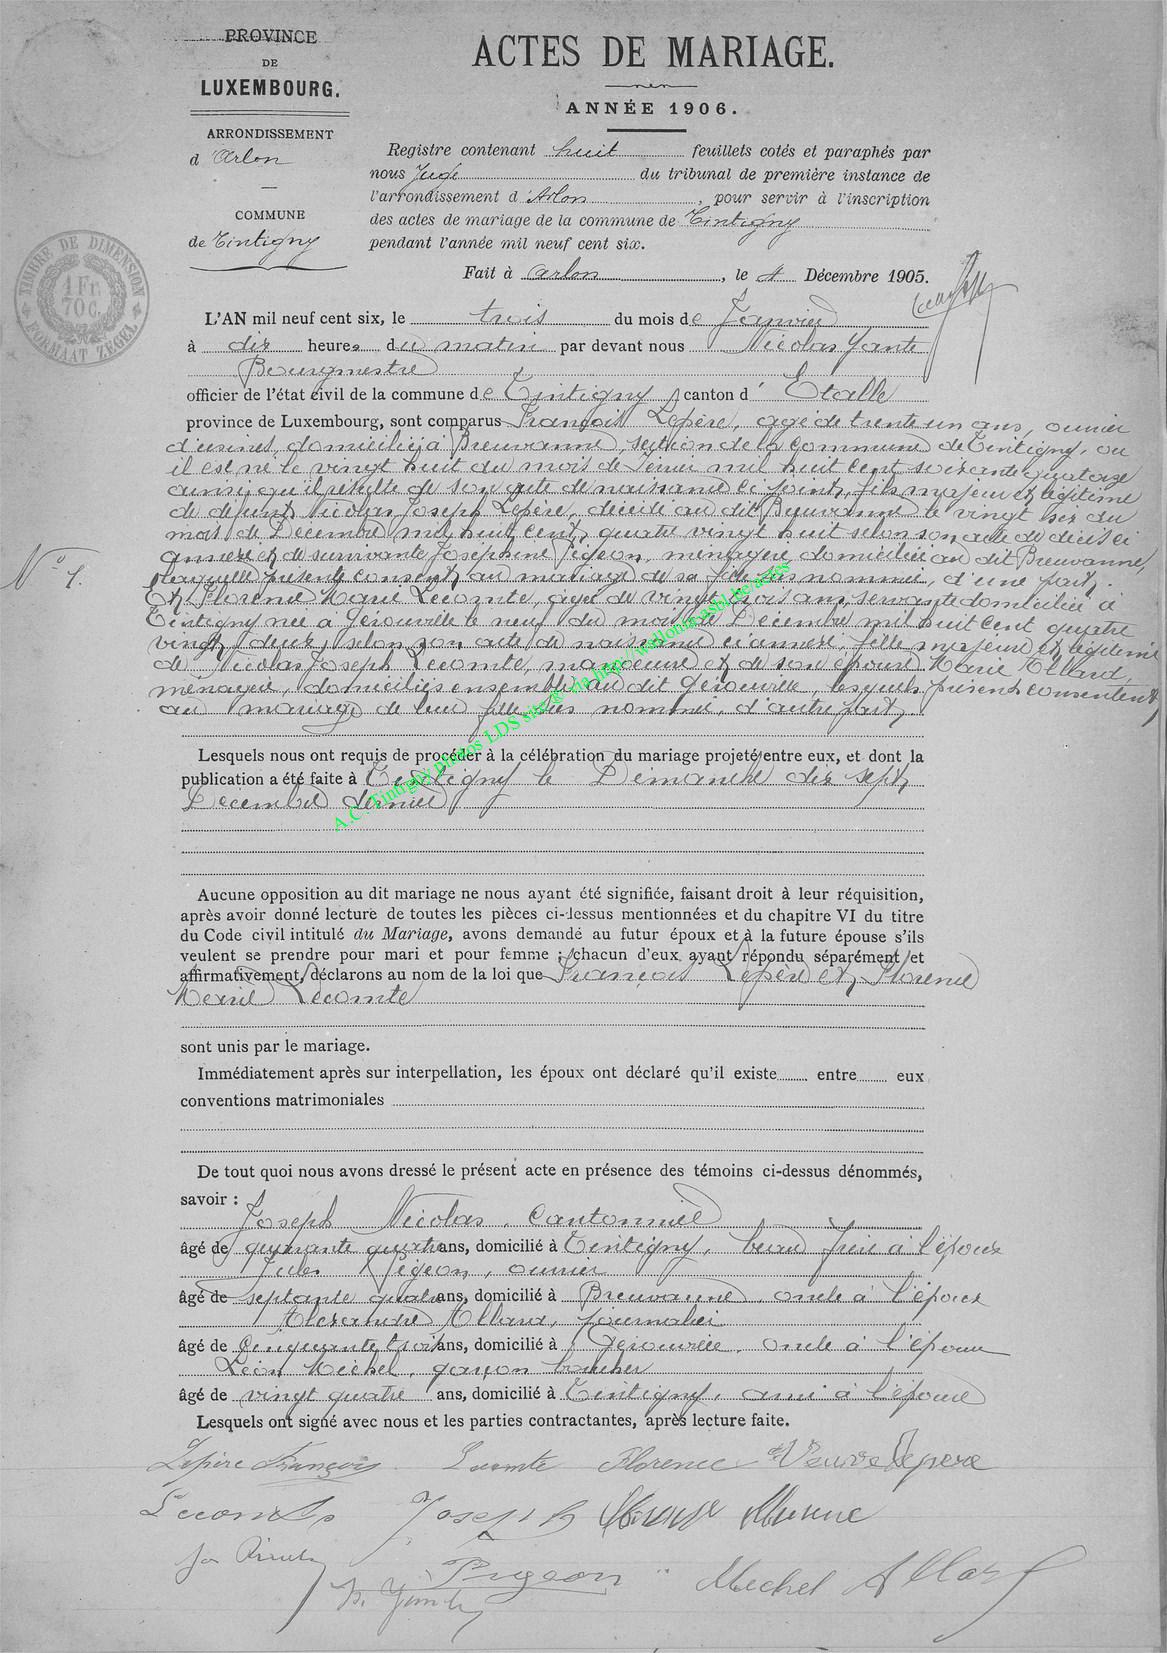 PROVINCE
DE
LUXEMBOURG.
ARRONDISSEMENT
d'Arlon
COMMUNE
de Tintigny
TIMBRE DE DIMENSION
1 Fr.
70 C.
FORMAAT ZEGEL
ACTES DE MARIAGE.
ANNÉE 1906.
Registre contenant huit feuillets cotés et paraphés par
nous Juge du tribunal de première instance de
l'arrondissement d'Arlon, pour servir à l'inscription
des actes de mariage de la commune de Tintigny
pendant l'année mil neuf cent six.
Fait à Arlon, le 4 Décembre 1905.
L'AN mil neuf cent six, le trois du mois de Janvier
à dix heures du matin par devant nous Nicolas
Bourgmestre
officier de l'état civil de la commune de Tintigny, canton d'Etalle
province de Luxembourg, sont comparus François Lepère, agé de trente un ans, ouvrier
d'usines, domicilié à Breuvanne, section de la commune de Tintigny, où
il est né le vingt huit du mois de mil huit cent soixante quatorze
ainsi qu'il résulte de son acte de naissance ci joint, fils majeur et légitime
de défunt Nicolas Joseph Lepère, décédé au dit Breuvanne le vingt six du
mois de Décembre mil huit cent quatre vingt huit selon son acte de décès ci
annexé et de survivante Joséphine Pigeon, ménagère domiciliée au dit Breuvanne,
laquelle présente consent au mariage de sa fils nommé, d'une part.
N° 1.
Et Florence Marie Lecomte, agée de vingt trois ans, servante domiciliée à
Tintigny née à Gérouville le neuf du mois de Décembre mil huit cent quatre
vingt deux, selon son acte de naissance ci annexé, fille majeure et légitime
de Nicolas Joseph Lecomte, manoeuvre et de son épouse Marie Allard,
ménagère, domiciliés ensemble au dit Gérouville, lesquels présents consentent
au mariage de leur fille nommée, d'autre part,
A.C. Tintigny photos LDS site @ via http://wallonia-asbl.be/actes
Lesquels nous ont requis de procéder à la célébration du mariage projeté entre eux, et dont la
publication a été faite à Tintigny le Dimanche dix sept
Décembre dernier
Aucune opposition au dit mariage ne nous ayant été signifiée, faisant droit à leur réquisition,
après avoir donné lecture de toutes les pièces ci-dessus mentionnées et du chapitre VI du titre
du Code civil intitulé du Mariage, avons demandé au futur époux et à la future épouse s'ils
veulent se prendre pour mari et pour femme ; chacun d'eux ayant répondu séparément et
affirmativement, déclarons au nom de la loi que François Lepère et Florence
Marie Lecomte
sont unis par le mariage.
Immédiatement après sur interpellation, les époux ont déclaré qu'il existe entre eux
conventions matrimoniales
De tout quoi nous avons dressé le présent acte en présence des témoins ci-dessus dénommés,
savoir :
Joseph Nicolas, Cantonnier
âgé de quarante quatre ans, domicilié à Tintigny, beau frère à l'époux
Jules Pigeon, ouvrier
âgé de septante quatre ans, domicilié à Breuvanne, oncle à l'époux
Alexandre Allard, journalier
âgé de Cinquante trois ans, domicilié à Gérouville, oncle à l'épouse
Léon Michel, garçon boucher
âgé de vingt quatre ans, domicilié à Tintigny, ami à l'épouse
Lesquels ont signé avec nous et les parties contractantes, après lecture faite.
Lepère François Lecomte Florence Veuve Lepere
Lecomte Joseph
Pigeon Michel Allard